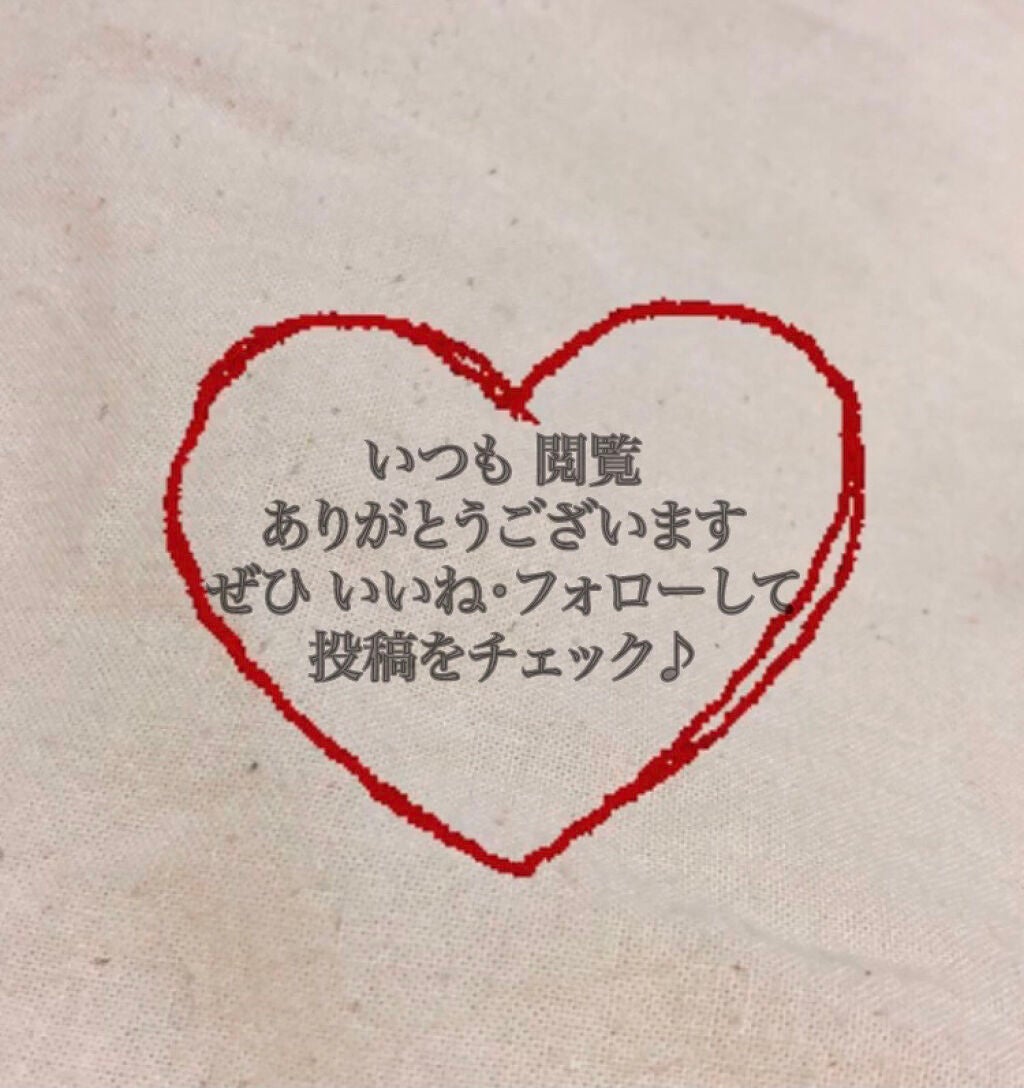 いつも 閲覧
ありがとうございます
ぜひ いいね・フォローして
投稿をチェック♪